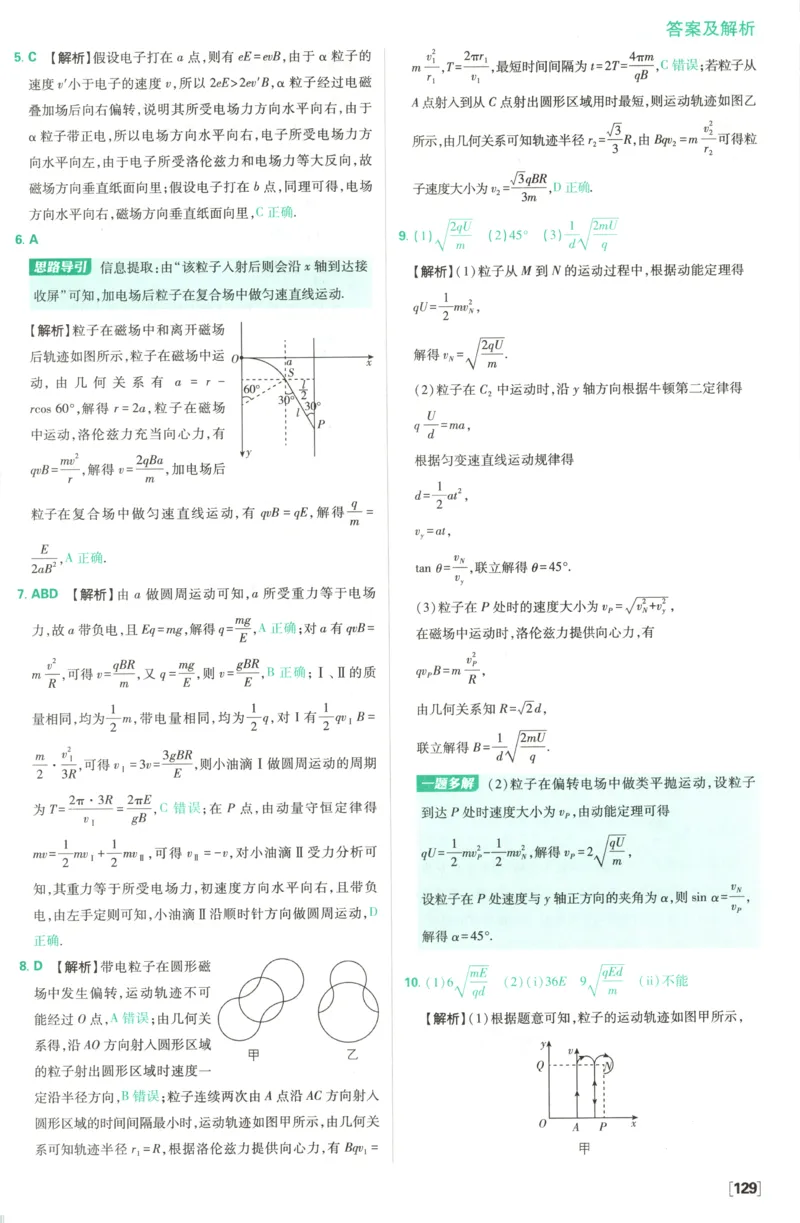 答案及解析
5. C 【解析】假设电子打在 a 点,则有 eE=evB,由于 α 粒子的
速度 v′小于电子的速度 v,所以 2eE>2ev′B,α 粒子经过电磁
叠加场后向右偏转,说明其所受电场力方向水平向右,由于
α 粒子带正电,所以电场方向水平向右,电子所受电场力方
向水平向左,由于电子所受洛伦兹力和电场力等大反向,故
磁场方向垂直纸面向里;假设电子打在 b 点,同理可得,电场
方向水平向右,磁场方向垂直纸面向里,C 正确.
6. A
思路导引 信息提取:由“该粒子入射后则会沿 x 轴到达接
收屏”可知,加电场后粒子在复合场中做匀速直线运动.
【解析】粒子在磁场中和离开磁场
后轨迹如图所示,粒子在磁场中运
动, 由 几 何 关 系 有 a = r -
rcos 60°,解得 r=2a,粒子在磁场
中运动,洛伦兹力充当向心力,有
qvB=mv²/r,解得 v=2qBa/m,加电场后
O a x
S
60° l/2
30° 30°
l P
y
粒子在复合场中做匀速直线运动,有 qvB=qE,解得 q/m =
E/2aB²,A 正确.
7. ABD 【解析】由 a 做圆周运动可知,a 所受重力等于电场
力,故 a 带负电,且 Eq=mg,解得 q=mg/E,A 正确;对 a 有 qvB=
m v²/R,可得 v=qBR/m,又 q=mg/E,则 v=gBR/E,B 正确;Ⅰ、Ⅱ的质
量相同,均为 1/2 m,带电量相同,均为 1/2 q,对Ⅰ有 1/2 qv₁B=
m/2 · v₁²/3R,可得 v₁=3v=3gBR/E,则小油滴Ⅰ做圆周运动的周期
为 T=2π·3R/v₁=2πE/gB,C 错误;在 P 点,由动量守恒定律得
mv=1/2 mv₁+1/2 mv_Ⅱ,可得 v_Ⅱ=-v,对小油滴Ⅱ受力分析可
知,其重力等于所受电场力,初速度方向水平向右,且带负
电,由左手定则可知,小油滴Ⅱ沿顺时针方向做圆周运动,D
正确.
8. D 【解析】带电粒子在圆形磁
场中发生偏转,运动轨迹不可
能经过 O 点,A 错误;由几何关
系得,沿 AO 方向射入圆形区域
的粒子射出圆形区域时速度一
甲 乙
定沿半径方向,B 错误;粒子连续两次由 A 点沿 AC 方向射入
圆形区域的时间间隔最小时,运动轨迹如图甲所示,由几何关
系可知轨迹半径 r₁=R,根据洛伦兹力提供向心力,有 Bqv₁=
m v₁²/r₁,T=2πr₁/v₁,最短时间间隔为 t=2T=4πm/qB,C 错误;若粒子从
A 点射入到从 C 点射出圆形区域用时最短,则运动轨迹如图乙
所示,由几何关系可知轨迹半径 r₂=√3/3 R,由 Bqv₂=m v₂²/r₂ 可得粒
子速度大小为 v₂=√3qBR/3m,D 正确.
9. (1)√(2qU/m) (2)45° (3)1/d √(2mU/q)
【解析】(1)粒子从 M 到 N 的运动过程中,根据动能定理得
qU=1/2 mv_N²,
解得 v_N=√(2qU/m).
(2)粒子在 C₂ 中运动时,沿 y 轴方向根据牛顿第二定律得
q U/d=ma,
根据匀变速直线运动规律得
d=1/2 at²,
v_y=at,
tan θ=v_N/v_y,联立解得 θ=45°.
(3)粒子在 P 处时的速度大小为 v_P=√(v_N²+v_y²),
在磁场中运动时,洛伦兹力提供向心力,有
qv_PB=m v_P²/R,
由几何关系知 R=√2d,
联立解得 B=1/d √(2mU/q).
一题多解 (2)粒子在偏转电场中做类平抛运动,设粒子
到达 P 处时速度大小为 v_P,由动能定理可得
qU=1/2 mv_P²-1/2 mv_N²,解得 v_P=2√(qU/m),
设粒子在 P 处速度与 y 轴正方向的夹角为 α,则 sin α=v_N/v_P,
解得 α=45°.
10. (1)6√(mE/qd) (2)(ⅰ)36E 9√(qEd/m) (ⅱ)不能
【解析】(1)根据题意可知,粒子的运动轨迹如图甲所示,
y v
Q N
O A P x
甲
[129]